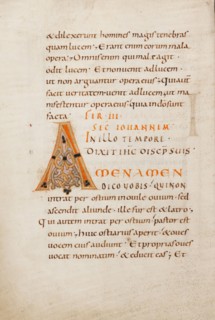 & dilexerunt homines magis tenebras
quam lucem; Erant enim eorum mala
opera; Omnis enim qui mal& agit
odit lucem; & non uenit ad lucem
ut non arguantur opera eius; Qui aut
facit ueritatem uenit ad lucem ut ma
nifestentur opera eius quia in do sunt
facta
FER III
SEC IOHANNEM
IN ILLO TEMPORE
DIXIT IHS DISCIPULIS SUIS
AMEN AMEN
DICO UOBIS QUI NON
intrat per ostium in ouile ouium sed
ascendit aliunde ille fur est & latro;
Qui autem intrat per ostium pastor est
ouium; huic ostiarius aperit & oues
uocem eius audiunt Et proprias oues
uocat nominatim & educit eas; Et